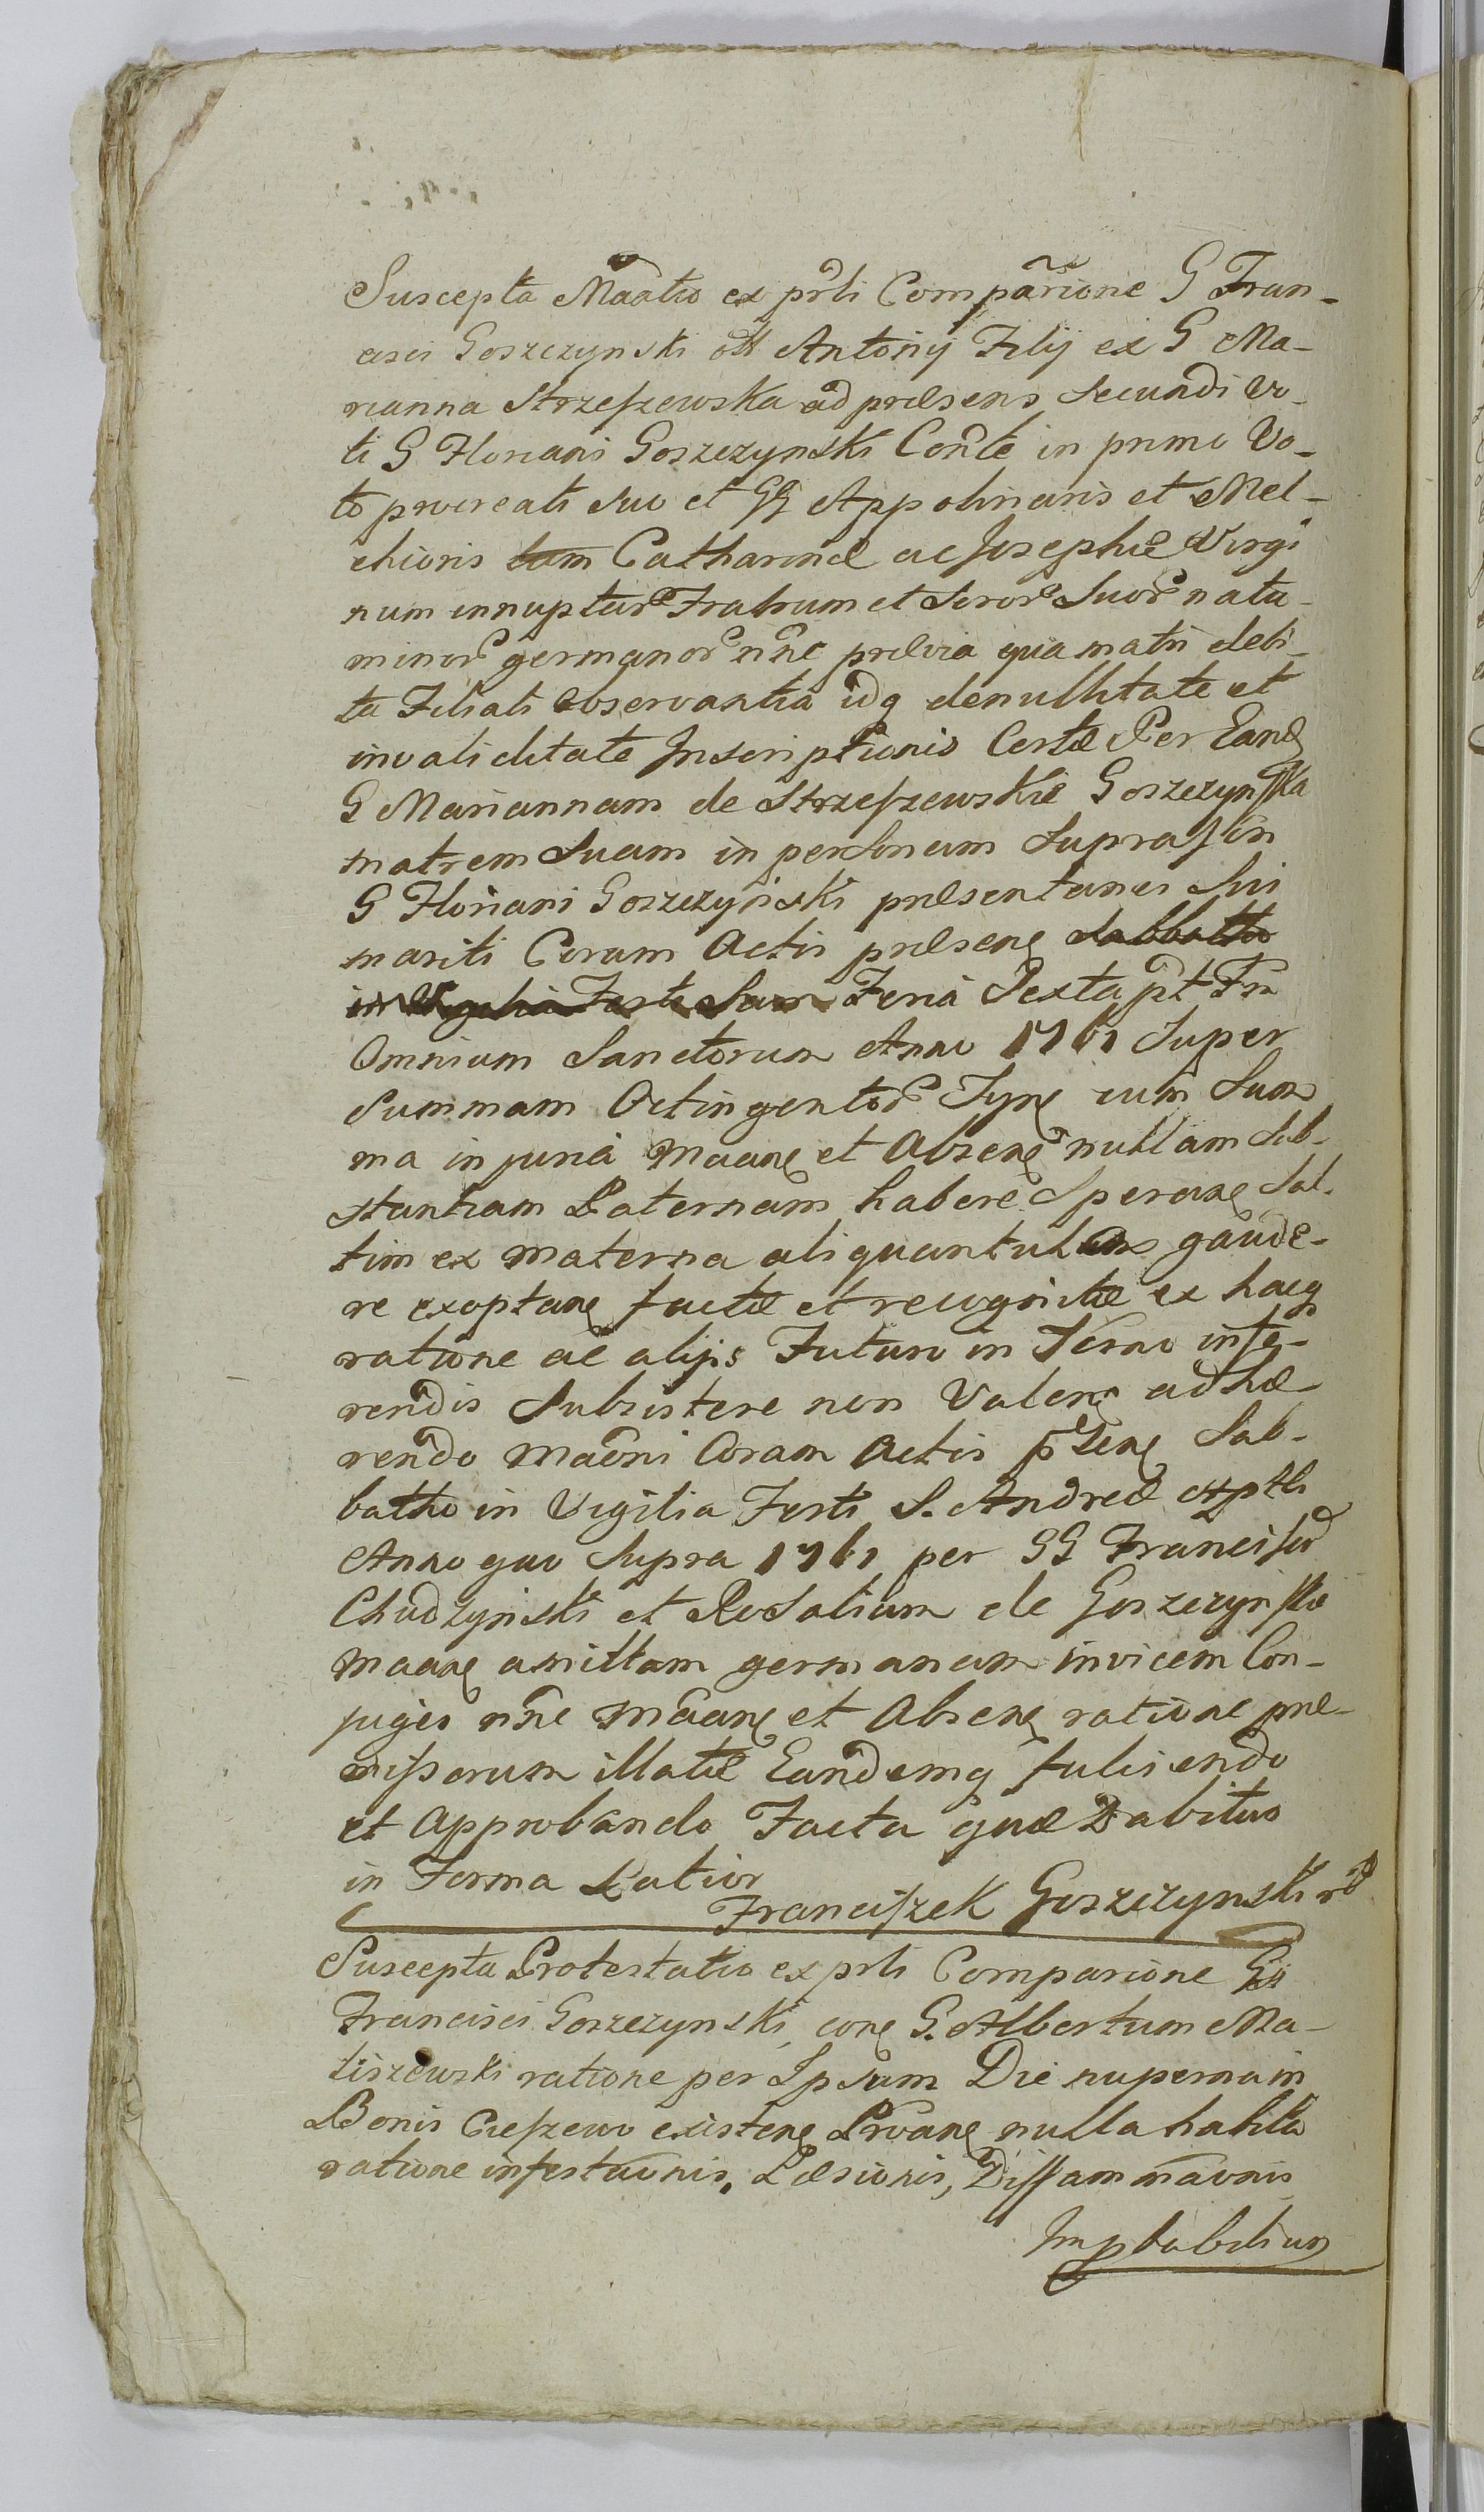 Suscepta Maatio ex prli Comparione G Fran-
cisci Goszczynski olt Antonij Filij ex G Ma-
rianna Strzeszewska ad præsens Secundi Vo-
ti G Floriani Goszczynski Conte in primo Vo-
to procreati Suo et GG Appolinaris et Mel-
chioris tam Catharinæ ac Josephæ Virgi
num innuptar Fratrum et Soror Suor natu
minor germanor nne prævia qua matri debi-
ta Filiali observantia idq denullitate et
invaliditate Inscriptionis Certæ Per Eand
G Mariannam de Strzeszewskie Goszczynska
matrem Suam in personam Suprascrin
G Floriani Goszczynski præsentanei Sui
mariti Coram Actis præsene Sabbatho
in Vigilia Festi Feria Sexta pt Fm
Omnium Sanctorum Anno 1761 Super
Summam Octingentor Tyne cum Sum
ma injuria Maane et Absene nullam Sub-
stantiam Paternam habere Sperane Sal-
tim ex materna aliquantulum gaude-
re exoptane factæ et recognitæ ex hacq
ratione ac alijs Futuro in Termo infe-
rendis Subsistere non Valene adhæ-
rendo Maoni Coram Actis præsene Sab-
batho in Vigilia Festi S. Andreæ Aptli
Anno quo Supra 1761 per GG Francisco
Chudzynski et Rosaliam de Goszczynskie
Maane amittam germanam invicem Con-
juges nne Maane et Absene ratione præ-
missorum illatæ Eandemq fulciendo
et Approbando Facta quæ Dabitur
in Forma Latior
Franciszek Goszczynski
Suscepta Protestatio ex prli Comparione Gsi
Francisci Goszczynski cone G. Albertum Ma-
liszewski ratione per Ipsum Die nuperna in
Bonis Cieszewo existene Proane nulla habita
ratione infestaonis, Læsionis, Diffammaonis